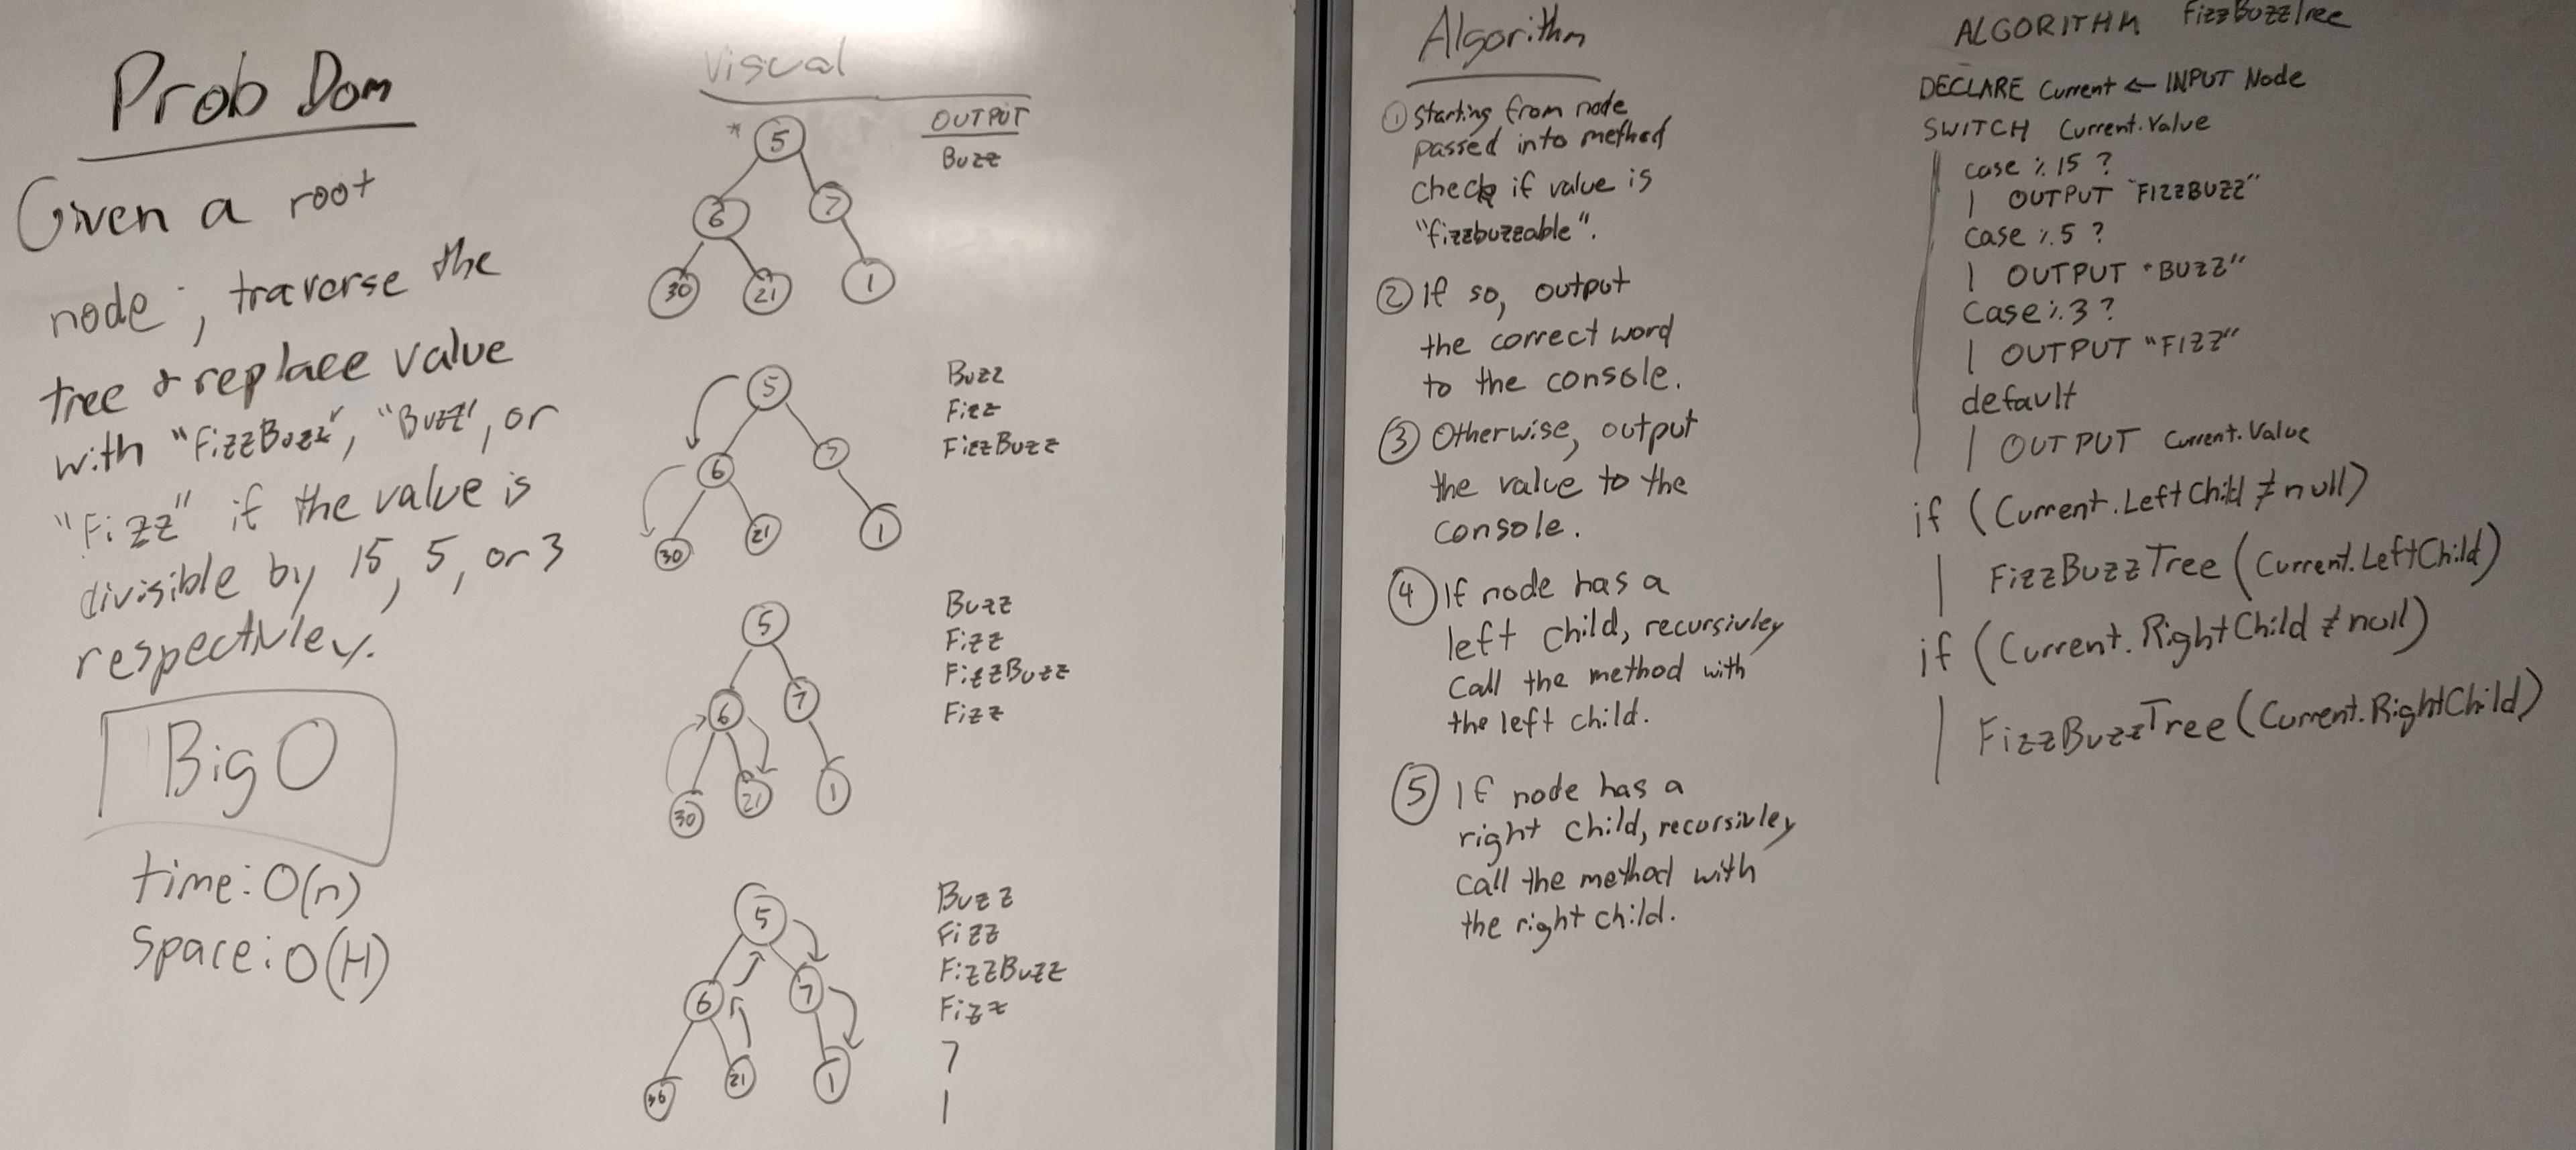 Prob Dom
Given a root
node, traverse the
tree & replace value
with "FizzBuzz", "Buzz", or
"Fizz" if the value is
divisible by 15, 5, or 3
respectivley.
Big O
time: O(n)
Space: O(H)
Visual
OUTPUT
* 5
Buzz
6 7
30 21 1
5
Buzz
Fizz
FizzBuzz
6 7
30 21 1
5
Buzz
Fizz
FizzBuzz
Fizz
6 7
30 21 1
5
Buzz
Fizz
FizzBuzz
Fizz
7
1
6 7
21 1
Algorithm
① Starting from node
passed into method
check if value is
"fizzbuzzable".
② If so, output
the correct word
to the console.
③ Otherwise, output
the value to the
console.
④ If node has a
left child, recursivley
call the method with
the left child.
⑤ If node has a
right child, recursivley
call the method with
the right child.
ALGORITHM FizzBuzzTree
DECLARE Current ← INPUT Node
SWITCH Current.Value
case % 15 ?
OUTPUT "FIZZBUZZ"
case % 5 ?
OUTPUT "BUZZ"
Case % 3 ?
OUTPUT "FIZZ"
default
OUTPUT Current.Value
if (Current.LeftChild ≠ null)
FizzBuzzTree (Current.LeftChild)
if (Current.RightChild ≠ null)
FizzBuzzTree (Current.RightChild)